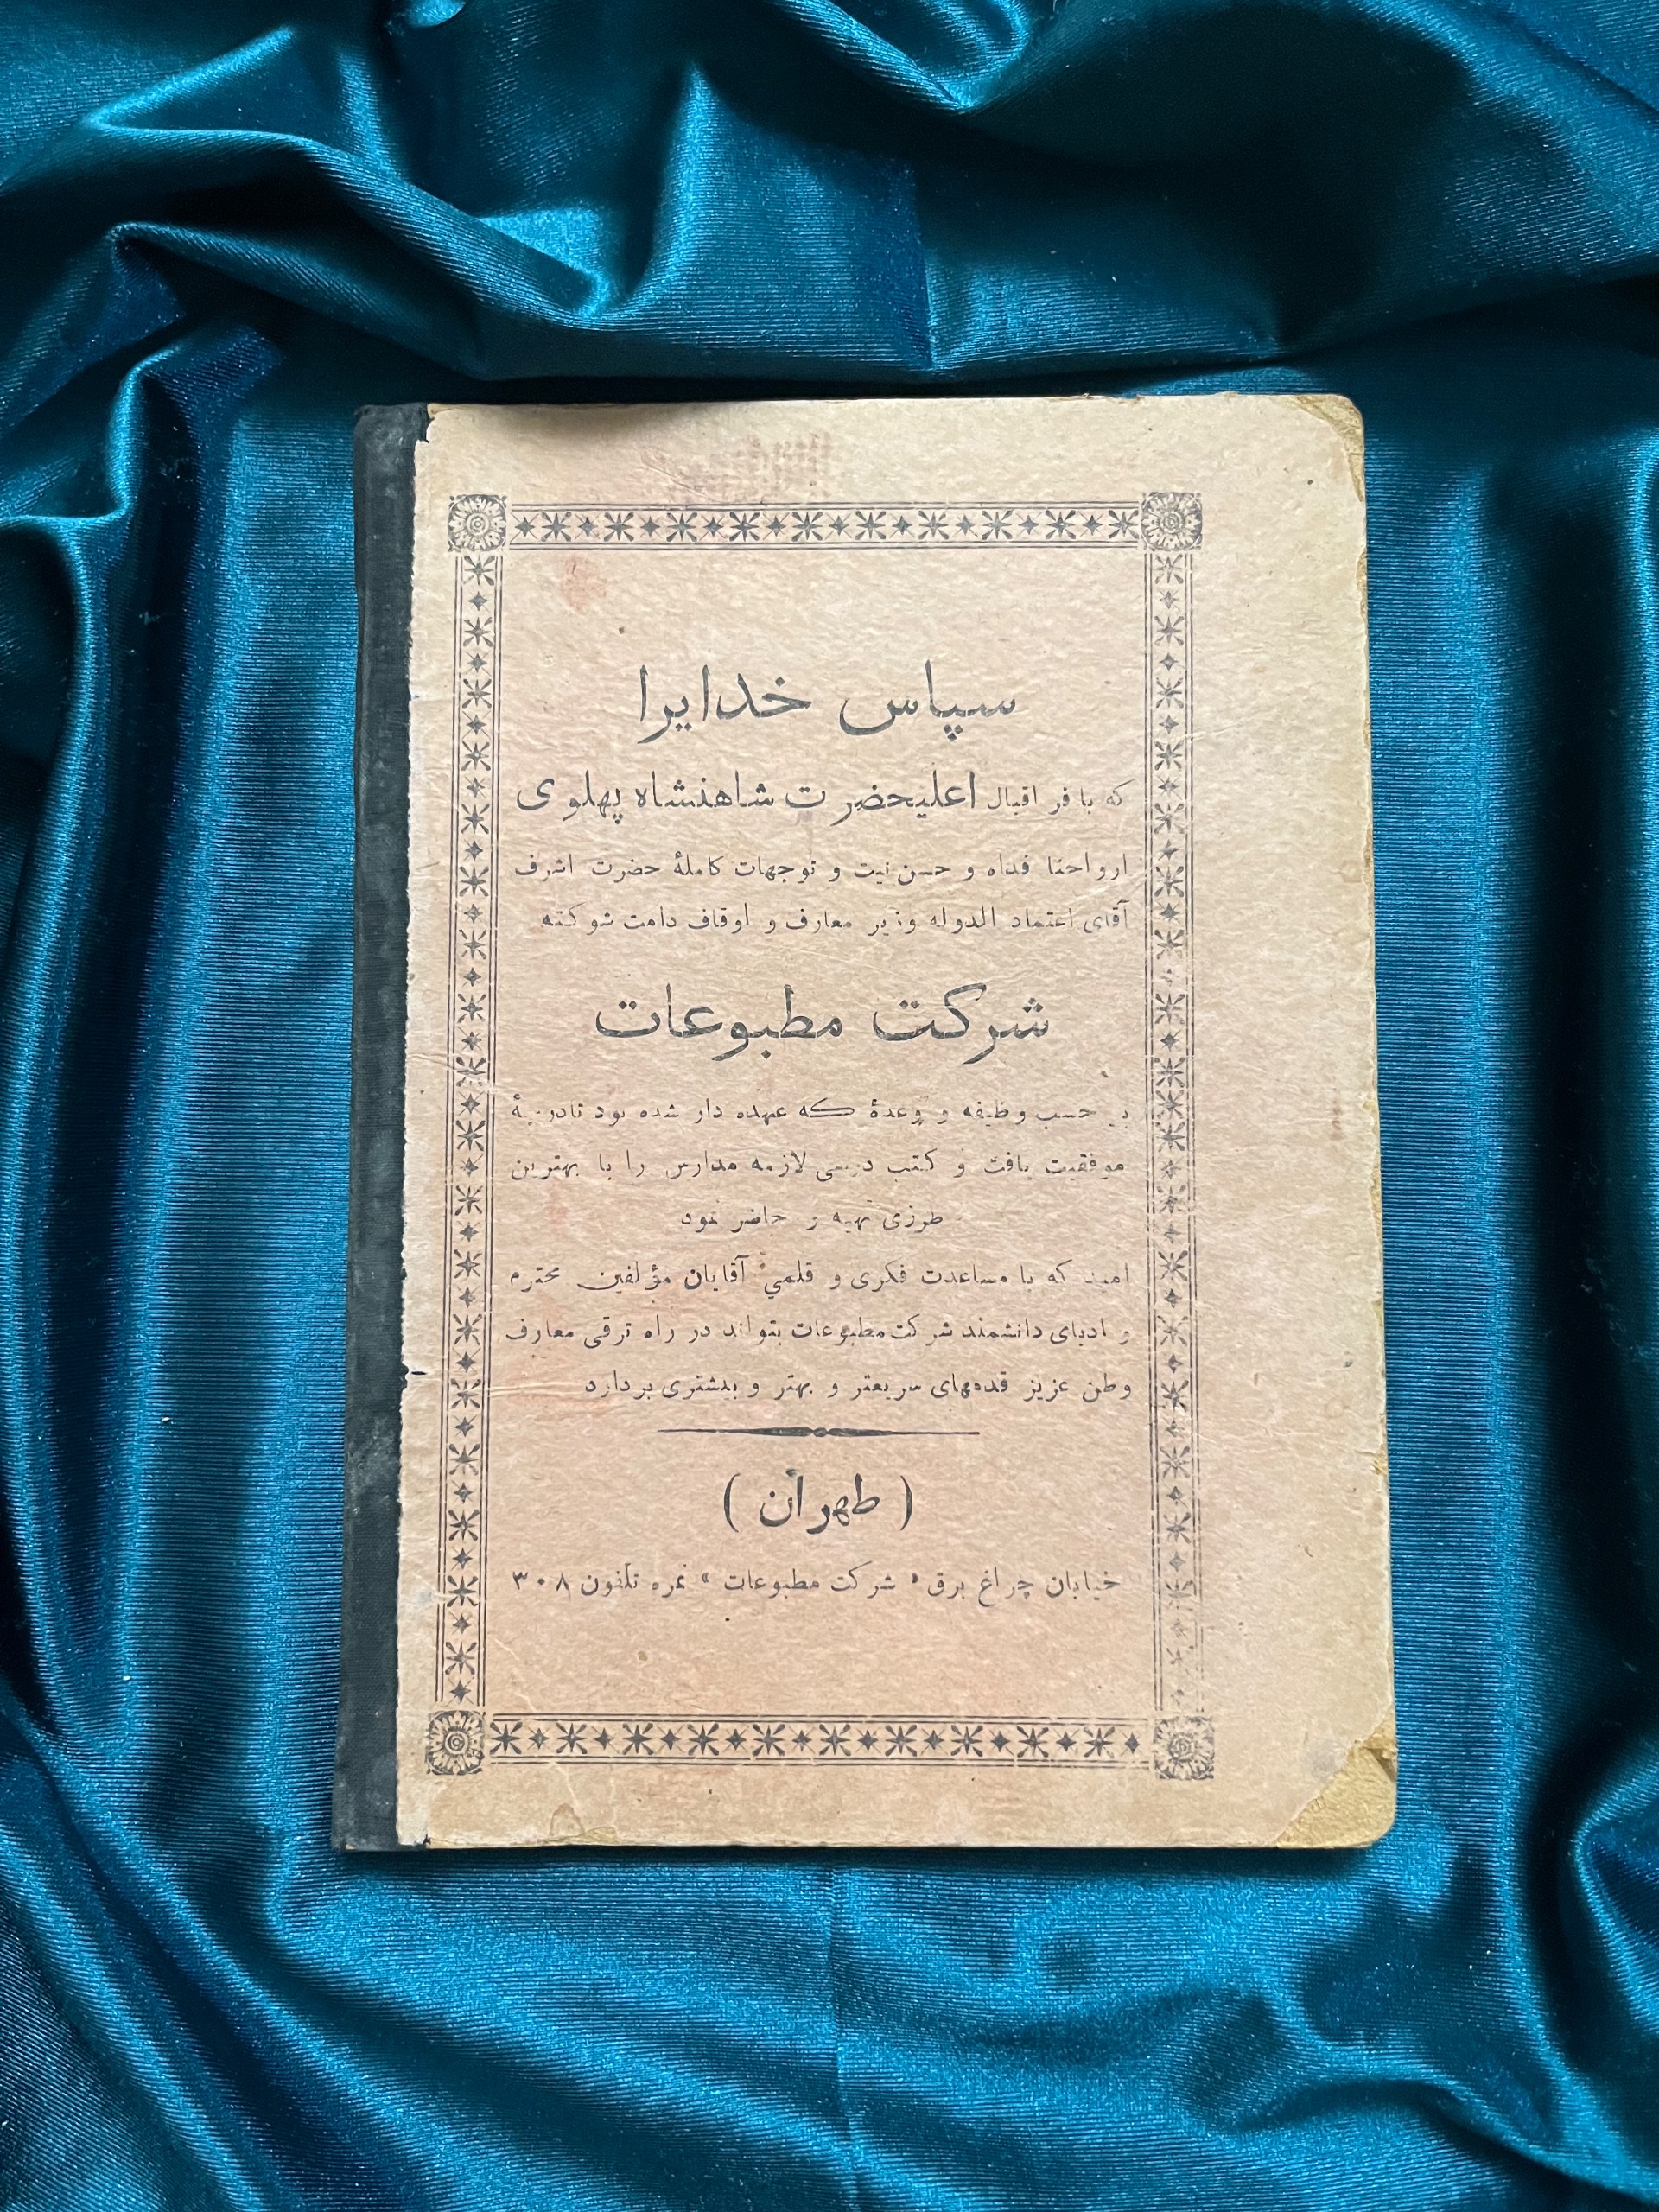 سپاس خدایرا
که با فر اقبال اعلیحضرت شاهنشاه پهلوی
ارواحنا فداه و حسن نیت و توجهات کاملهٔ حضرت اشرف
آقای اعتماد الدوله وزیر معارف و اوقاف دامت شوکته
شرکت مطبوعات
بر حسب وظیفه و وعدهٔ که عهده دار شده بود
موفقیت یافت و کتب درسی لازمه مدارس را با بهترین
طرزی تهیه و حاضر نمود
امید که با مساعدت فکری و قلمی آقایان مؤلفین محترم
و ادبای دانشمند شرکت مطبوعات بتواند در راه ترقی معارف
وطن عزیز قدمهای سریعتر و بهتر و بیشتری بردارد
( طهران )
خیابان چراغ برق « شرکت مطبوعات » نمره تلفون ۳۰۸